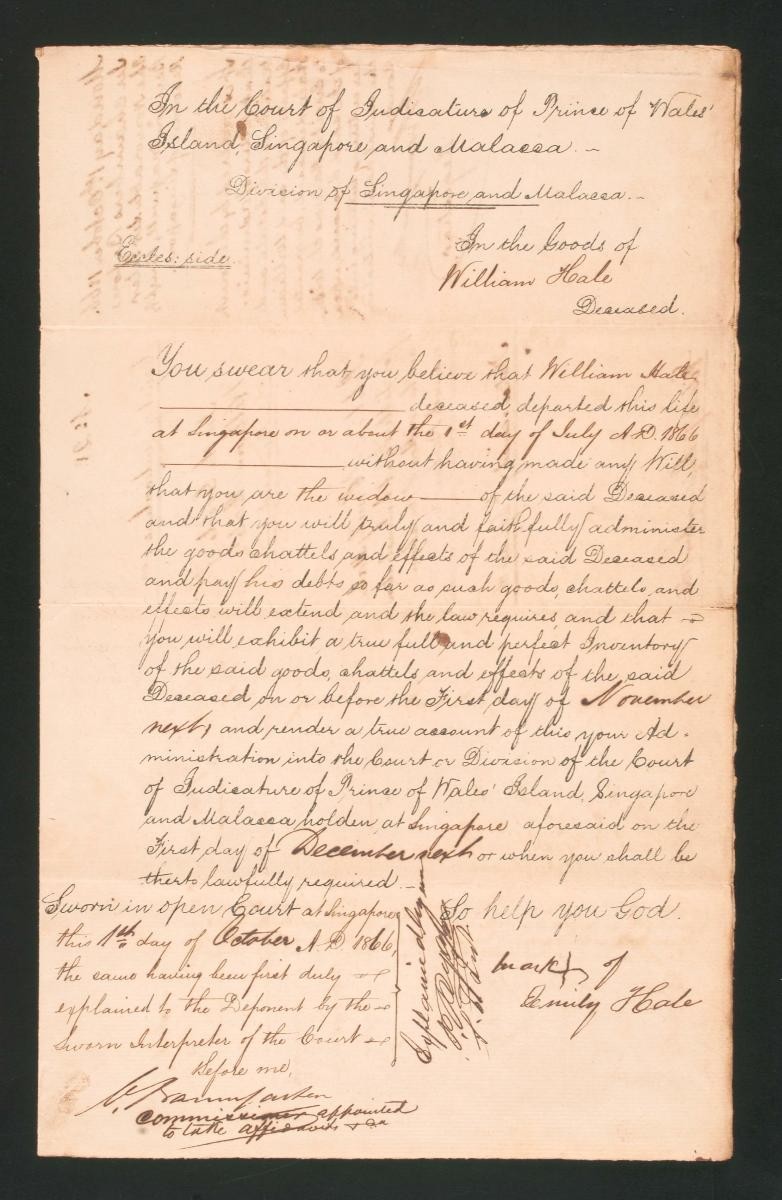 In the Court of Judicature of Prince of Wales'
Island, Singapore and Malacca. -
Division of Singapore and Malacca. -
Eccles: side.
In the Goods of
William Hale
Deceased.
You swear that you believe that William Hale
deceased, departed this life
at Singapore on or about the 1st day of July A.D. 1866
without having made any Will,
that you are the widow of the said Deceased
and that you will truly and faithfully administer
the goods chattels and effects of the said Deceased
and pay his debts so far as such goods, chattels, and
effects will extend and the law requires, and that
you will exhibit a true full and perfect Inventory
of the said goods, chattels and effects of the said
Deceased on or before the First day of November
next, and render a true account of this your Ad-
ministration into the Court or Division of the Court
of Judicature of Prince of Wales' Island, Singapore
and Malacca holden at Singapore aforesaid on the
First day of December next or when you shall be
thereto lawfully required. -
Sworn in open Court at Singapore
this 1st day of October A.D. 1866,
the same having been first duly
explained to the Deponent by the
Sworn Interpreter of the Court
Before me,
Commissioner appointed
to take affidavits &ca
Explained by me
So help you God.
mark of
Emily Hale